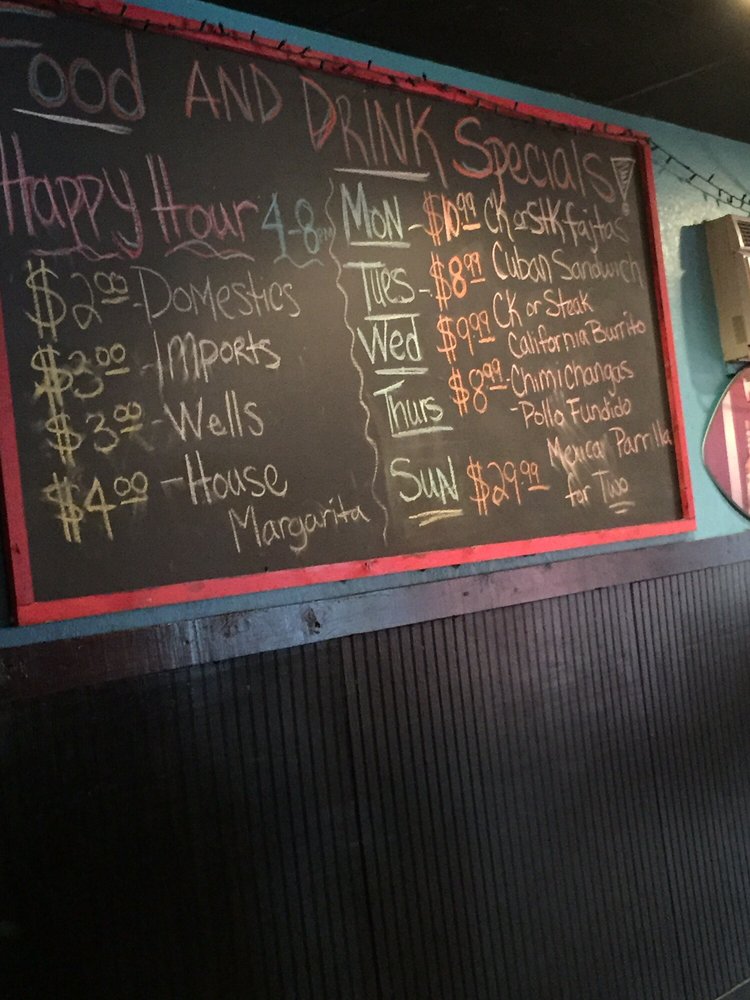 Food AND DRINK Specials!
Happy Hour 4-8pm
$2.00-Domestics
$3.00-Imports
$3.00-Wells
$4.00-House
Margarita
Mon-$10.99 CK or STK fajitas
Tues-$8.99 Cuban Sandwich
Wed $9.99 CK or Steak
California Burrito
Thurs $8.99-Chimichangas
-Pollo Fundido
Sun $29.99 Mexican Parrilla
for Two